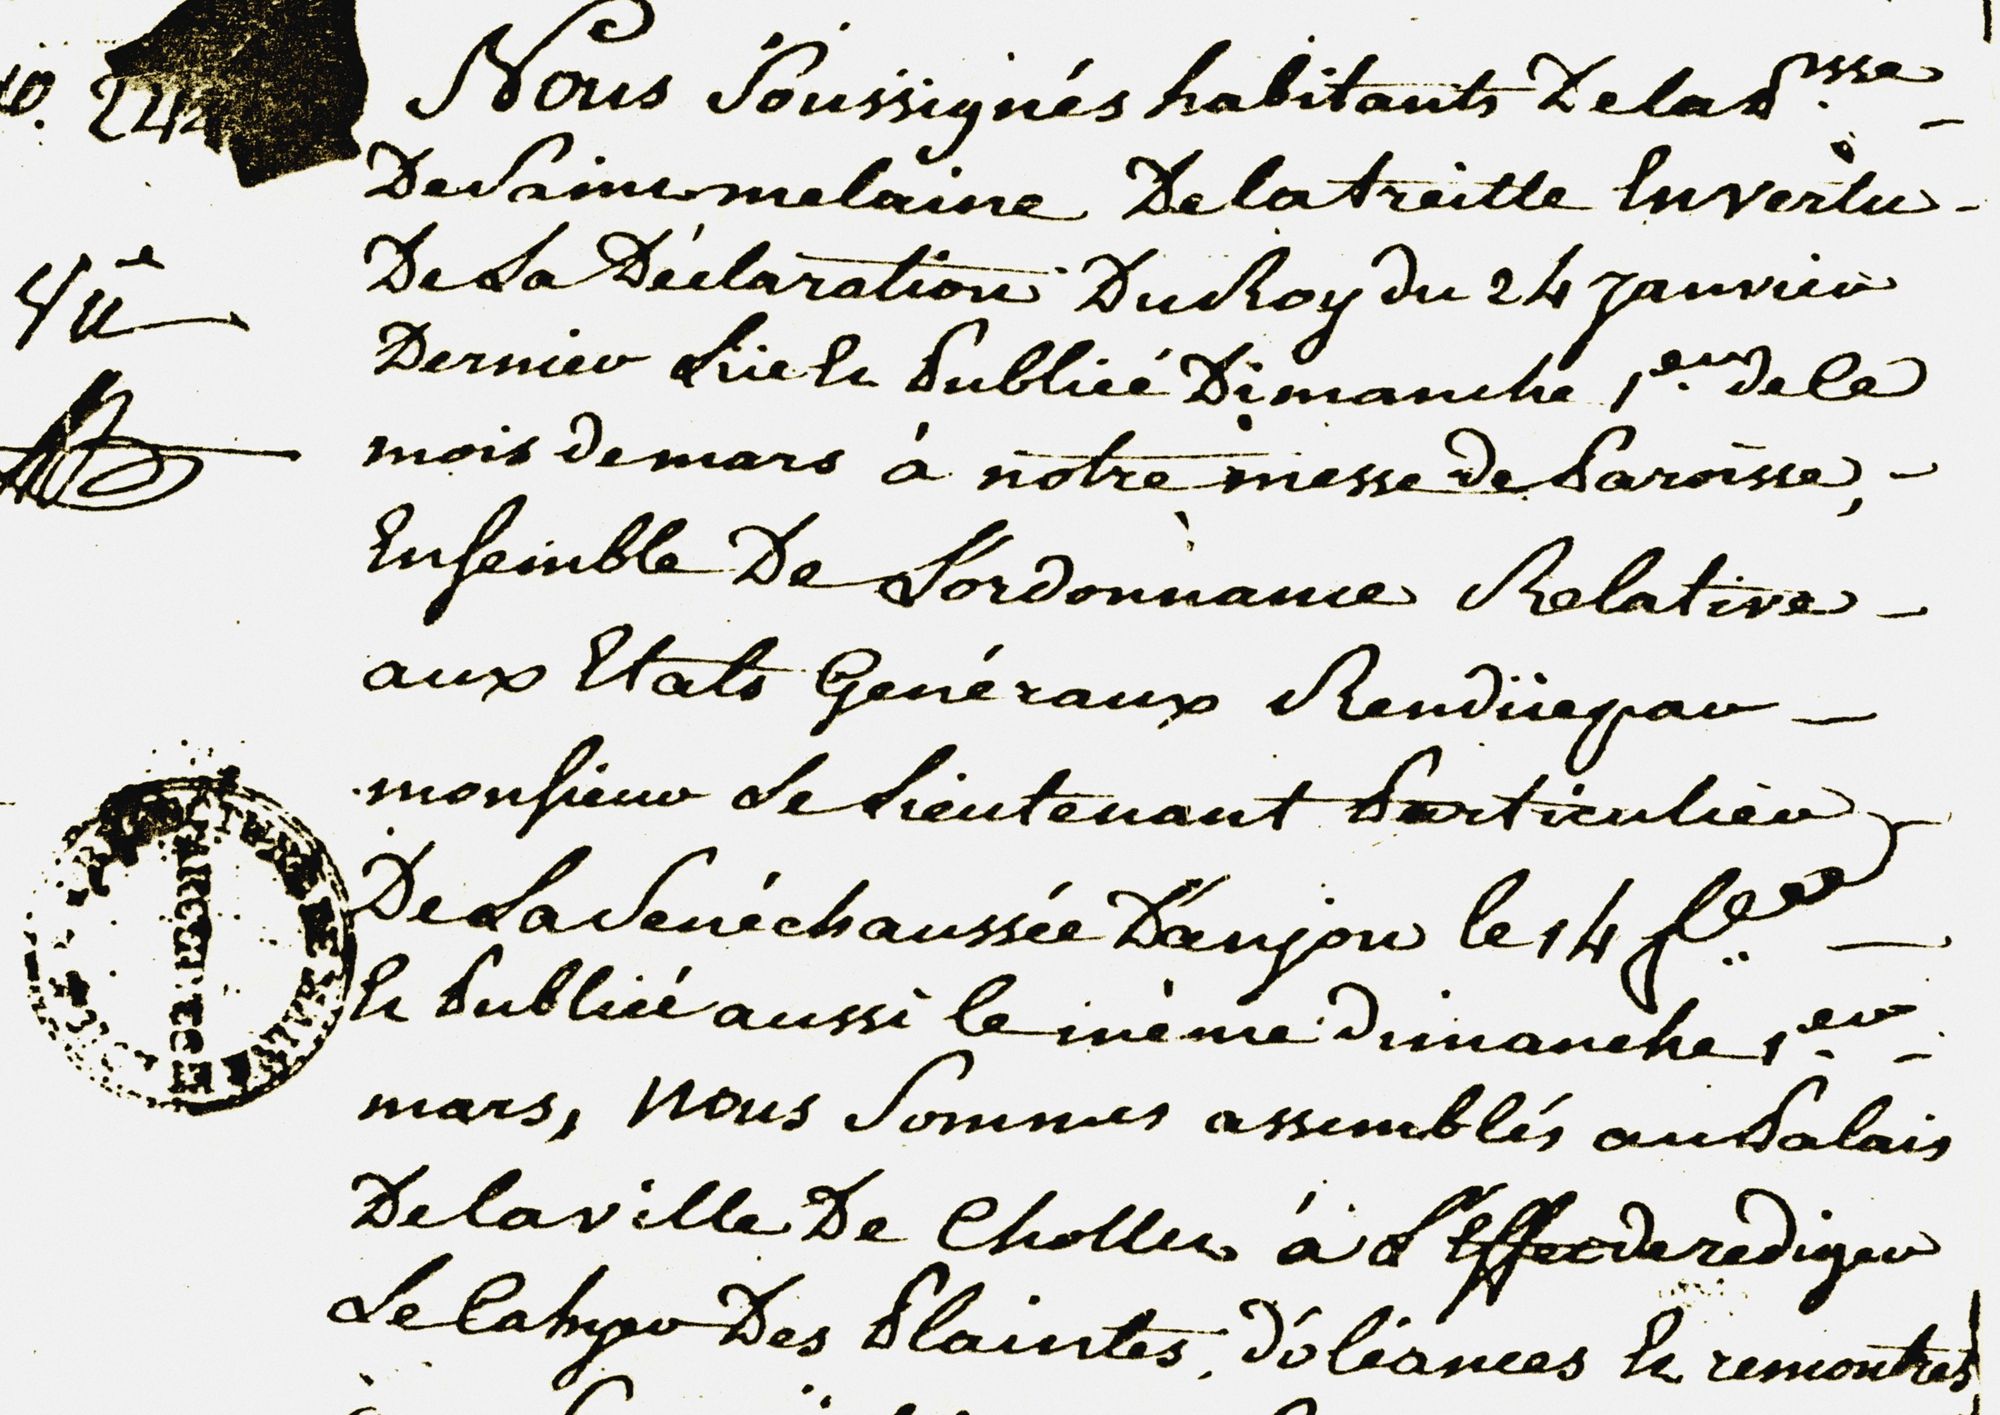 Nous soussignés habitants De la P.sse
De Saint melaine De la treille En vertu
De La Déclaration Du Roy du 24 Janvier
Dernier Lüe Et Publiée Dimanche 1.er de ce
mois de mars à notre messe de Paroisse,
Ensemble De L'ordonnance Relative
aux Etats Generaux Rendüe par
monsieur Le Lieutenant Particulier
De La Sénéchaussée D'anjou le 14 f.er
Et Publiée aussi le même dimanche 1.er
mars, nous sommes assemblés au Palais
De la ville De Chollet à L'Effet de rediger
Le Cahyer Des Plaintes, doléances Et remontres
244
Vue